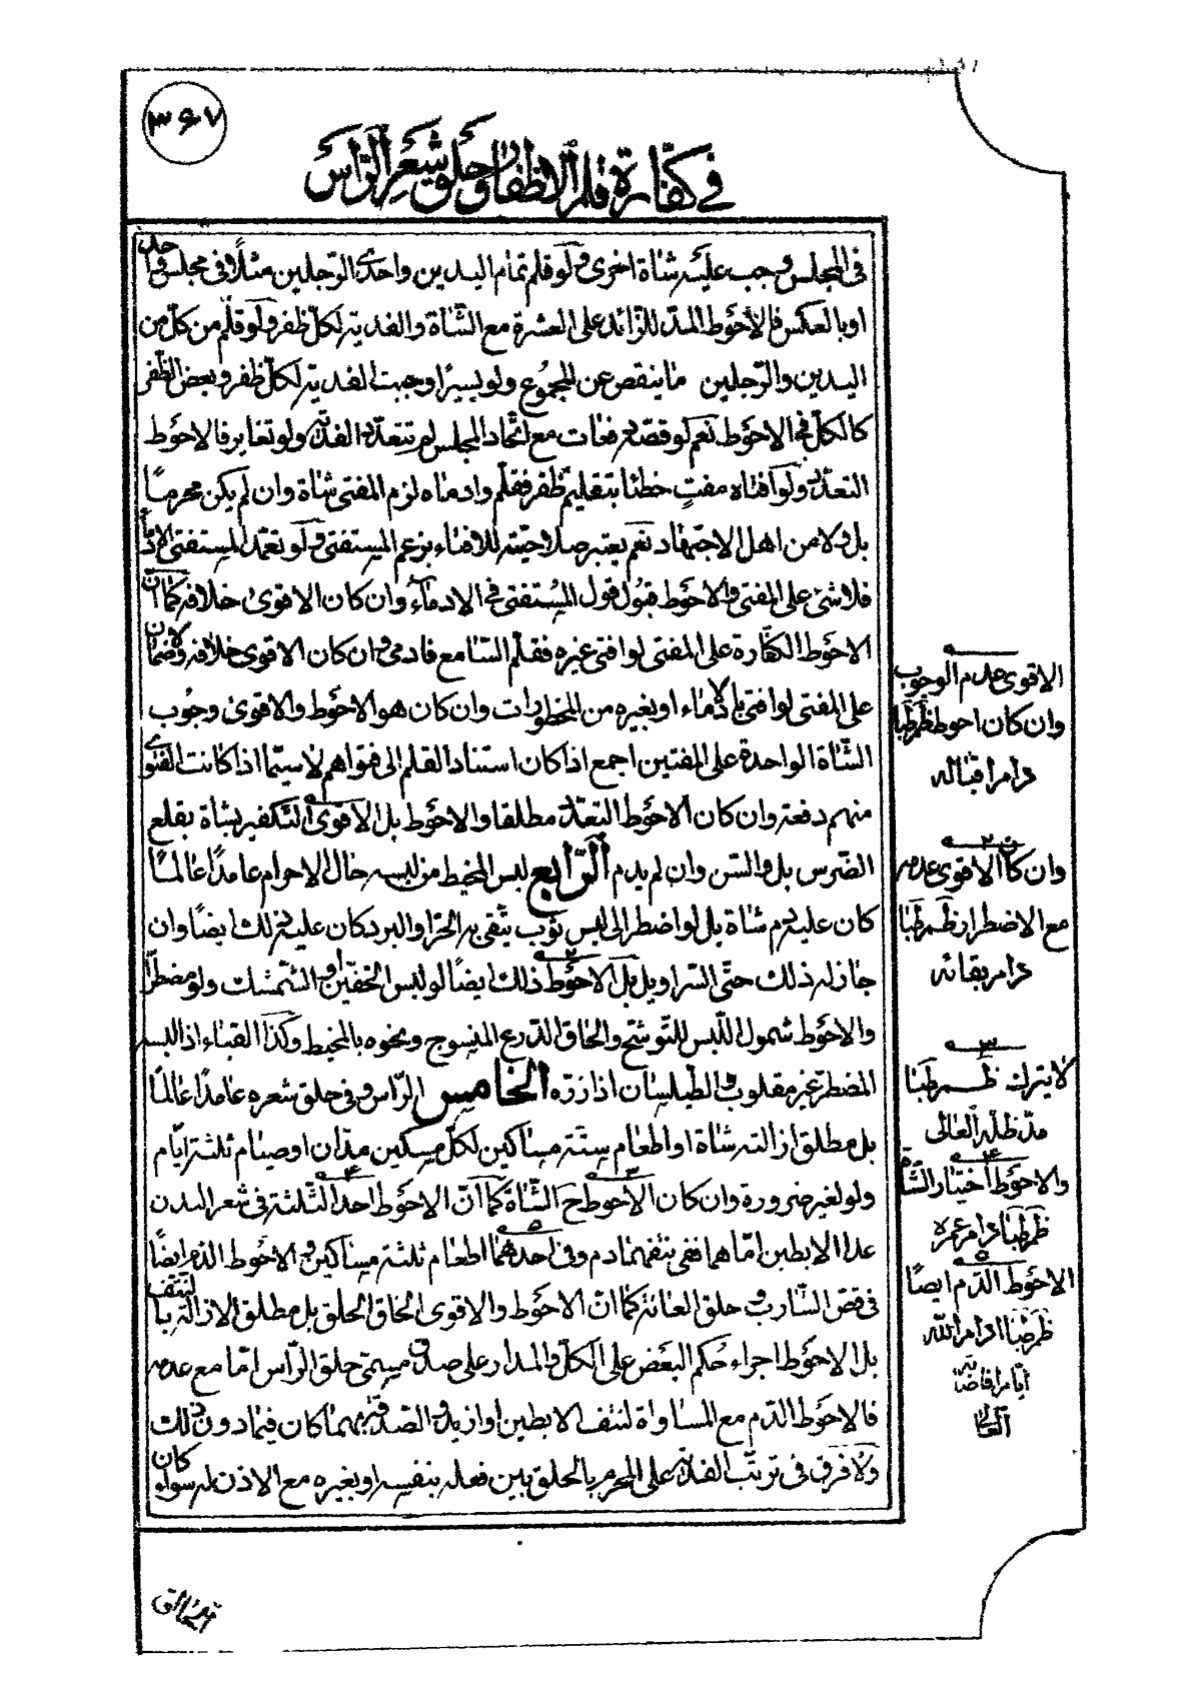 ٣۶٧
في كفّارة قلم الاظفار و حلق شعر الرّأس
فى المجلس وجب عليه شاة اخرى ولو قلم تمام اليدين واحدى الرّجلين مثلاً وفى مجلس واحد
او بالعكس فالاحوط المدّ للزّائد على العشرة مع الشّاة والفدية لكلّ ظفر ولو قلّم من كلّ من
اليدين والرّجلين ما ينقص عن المجموع ولو يسيرًا وجبت الفدية لكلّ ظفر وبعض الظّفر
كالكلّ فى الاحوط نعم لو قصّه دفعات مع اتّحاد المجلس لم تتعدّد الفدية ولو تغاير فالاحوط
التعدّد ولو افتاه مفتٍ خطئا بتقليم ظفر فقلّم وادماه لزم المفتى شاة وان لم يكن محرمًا
بل ولا من اهل الاجتهاد نعم يعتبر صلاحيّته للافتاء بزعم المستفتى ولو تعمّد المستفتى الادماء
فلا شئ على المفتى والاحوط قبول قول المستفتى فى الادماء وان كان الاقوى خلافه كما انّ
الاحوط الكفّارة على المفتى لو افتى غيره فقلم السّامع فادمى وان كان الاقوى خلافه ولا ضمان
على المفتى لو افتى بالادماء او بغيره من المحظورات وان كان هو الاحوط والاقوى وجوب
الشّاة الواحدة على المفتين اجمع اذا كان استناد القلم الى فتواهم لا سيّما اذا كانت الفتوى
منهم دفعة وان كان الاحوط التعدّد مطلقا والاحوط بل الاقوى التكفير بشاة بقلع
الضّرس بل والسّن وان لم يدم الرّابع لبس المخيط من لبسه حال الاحرام عامدًا عالمًا
كان عليه دم شاة بل لو اضطر الى لبس ثوب يتّقى به الحرّ او البرد كان عليه ذلك ايضًا وان
جاز له ذلك حتّى السّراويل بل الاحوط ذلك ايضًا لو لبس الخفّين او الشّمشك ولو مضطرًّا
والاحوط شمول اللّبس للتّوشّح والحاق الدّرع المنسوج ونحوه بالمخيط وكذا القباء اذا لبسه
المضطر غير مقلوب والطّيلسان اذا زرّه الخامس الرّاس وفى حلق شعره عامدًا عالمًا
بل مطلق ازالته شاة او اطعام ستّة مساكين لكلّ مسكين مدّان او صيام ثلثة ايّام
ولو لغير ضرورة وان كان الاحوط ح الشّاة كما انّ الاحوط احد الثّلثة فى شعر البدن
عدا الابطين امّا هما ففى نتفهما دم وفى احدهما اطعام ثلثة مساكين والاحوط الدّم ايضًا
فى قصّ الشّارب و حلق العانة كما انّ الاحوط والاقوى الحاق الحلق بل مطلق الازالة بالنّتف
بل الاحوط اجراء حكم البعض على الكلّ والمدار على صدق مسمّى حلق الرّاس امّا مع عدمه
فالاحوط الدّم مع المساواة لنتف الابطين او ازيد والصّدقة بمهما كان فيما دون ذلك
ولا فرق فى ترتّب الفدية على المحرم بالحلق بين فعله بنفسه او بغيره مع الاذن له سواء كان
الاقوى عدم الوجوب
وان كان احوط ظم طبا
دام اقباله
٢
وان كان الاقوى عدمه
مع الاضطرار ظم طبا
دام بقائه
٣
لا يترك ظم طبا
مدّ ظلّه العالى
۴
والاحوط اختيار الشّاة
ظم طبا دام عمره
۵
الاحوط الدّم ايضًا
ظم طبا ادام الله
ايّام افاضته
العالى
الحالق